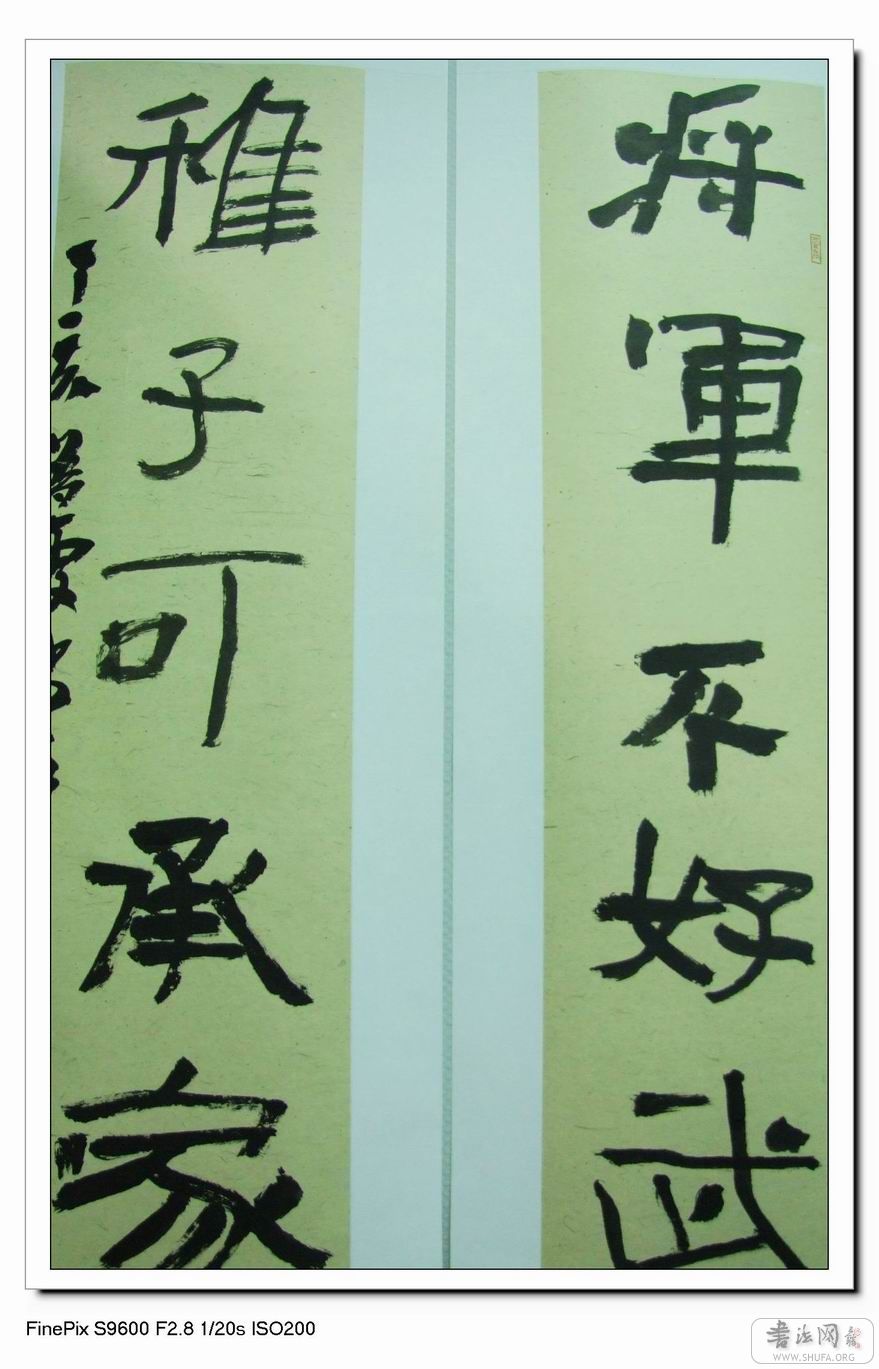 将軍不好武
稚子可承家
丁亥
FinePix S9600 F2.8 1/20s ISO200
書法网
WWW.SHUFA.ORG